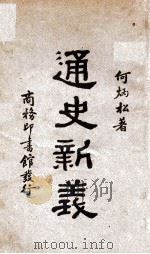 何炳松著
通史新義
商務印書館發行
www.mtoou.info